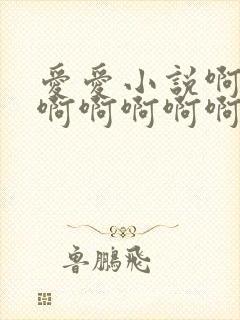 愛愛小説啊
啊啊啊啊啊
魯鵬飛